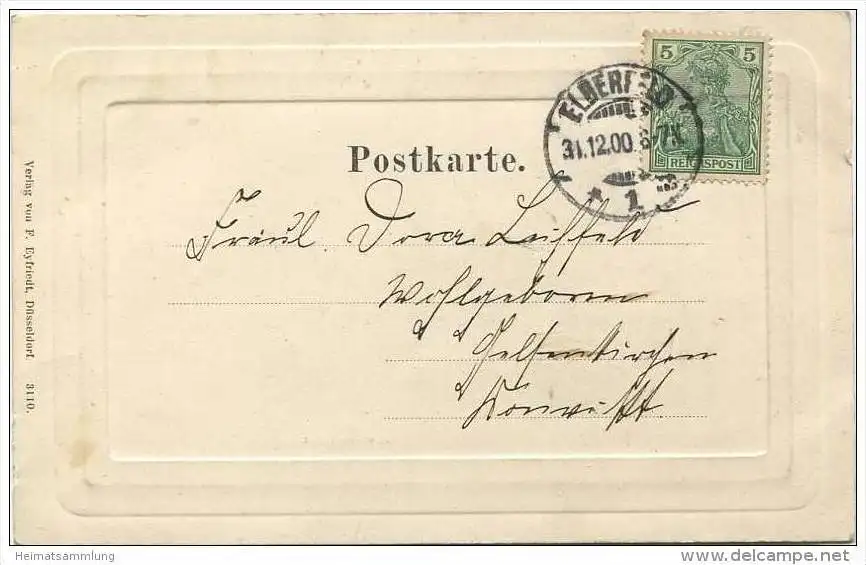 5 5
REICHSPOST
ELBERFELD
31.12.00. 6-7N.
* 1 i
Postkarte.
Fräul. Dora Leihfeld
Wohlgeboren
Gelsenkirchen
Verlag von F. Eyfriedt, Düsseldorf. 3110.
Heimatsammlung
www.delcampe.net